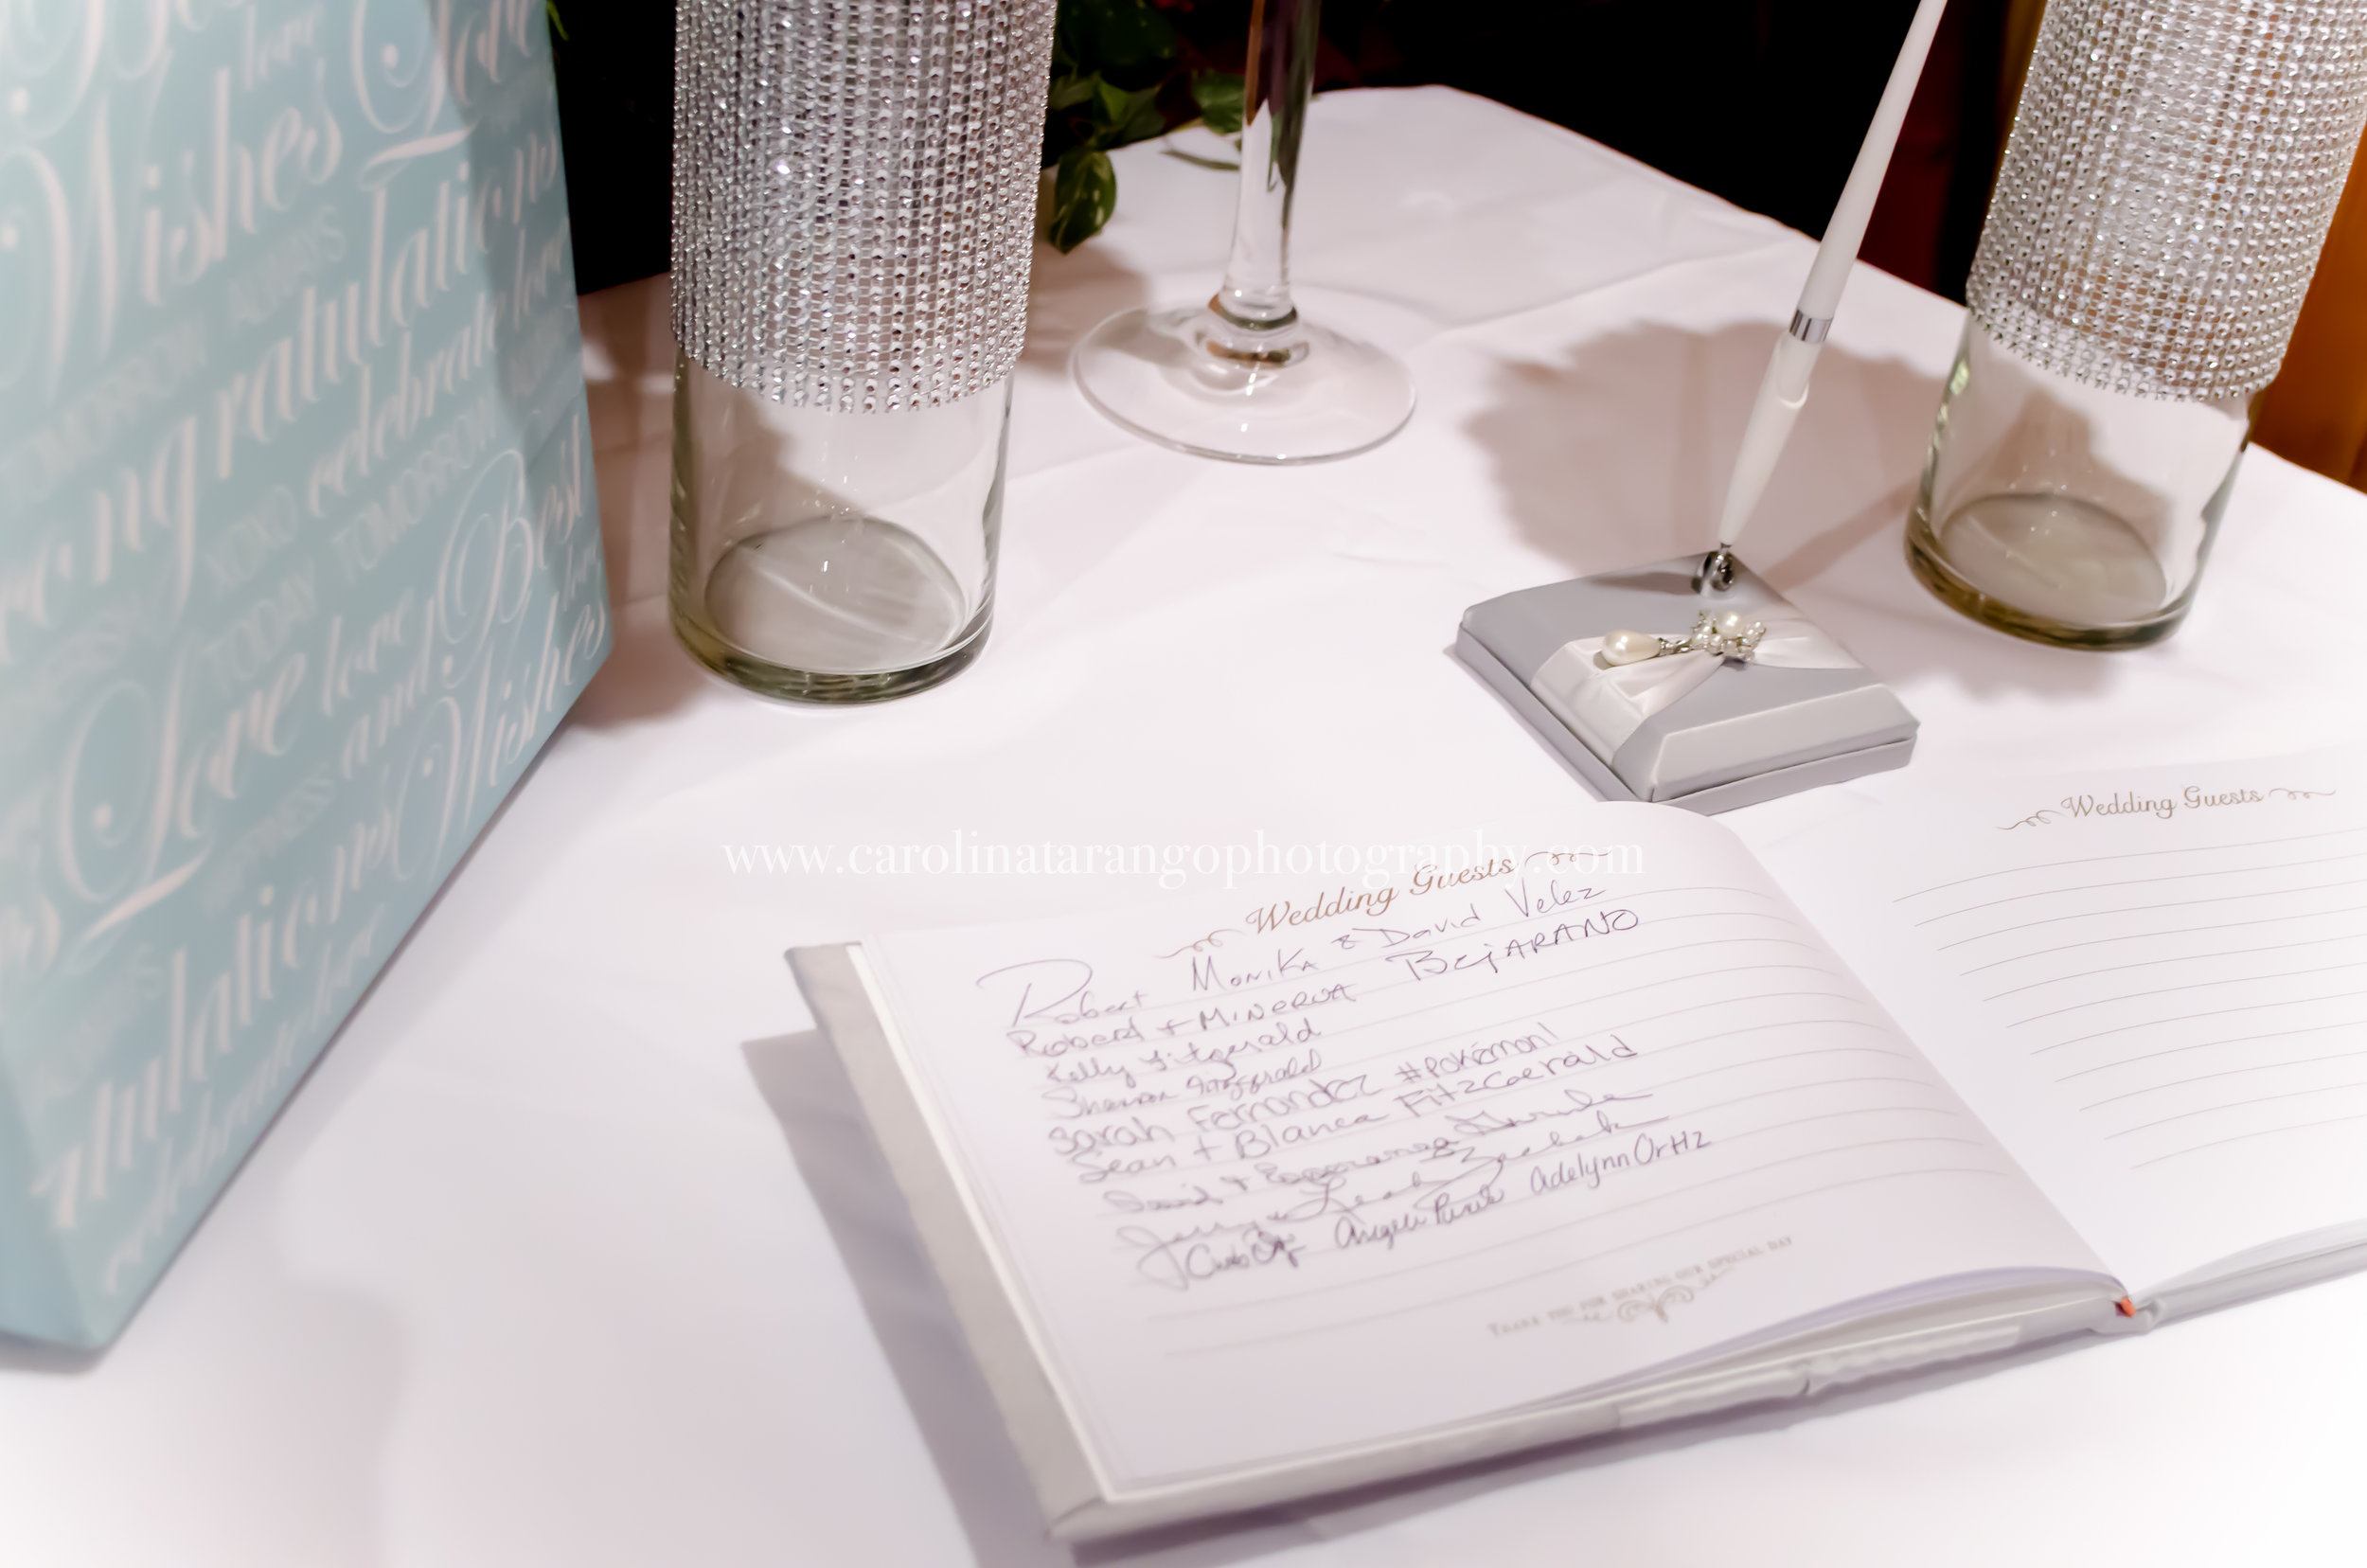 Best love Love
Wishes
Congratulations
TOMORROW ALWAYS
celebrate love
XOXO
TODAY TOMORROW
Love love and Best
HAPPINESS Wishes
ALWAYS
www.carolinatarangophotography.com
Wedding Guests
Robert Monika & David Velez
Robert + MINERVA BEjARANO
Kelly Fitzgerald
Sharon Fitzgerald
Sarah Fernandez #pokémon!
Sean + Blanca FitzGerald
David + Esperanza
Jerry & Leah
Adelynn Ortiz
THANK YOU FOR SHARING OUR SPECIAL DAY
Wedding Guests